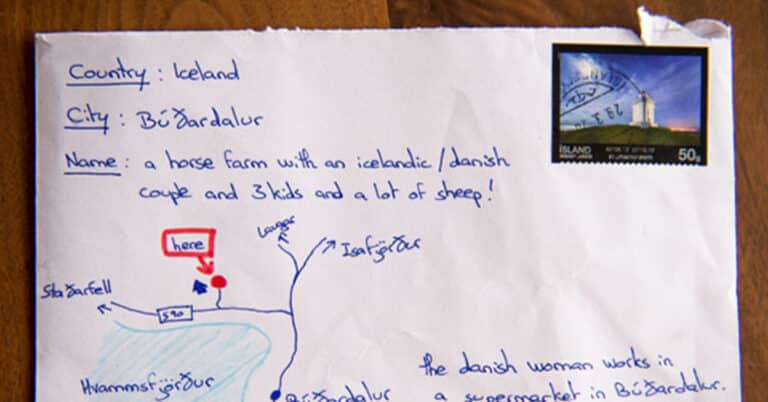 Country : Iceland
City : Búðardalur
Name : a horse farm with an icelandic/danish
couple and 3 kids and a lot of sheep!
ÍSLAND
50g
29.3.
here
Laugar
Isafjörður
Staðarfell
590
Hvammsfjörður
Búðardalur
the danish woman works in
a supermarket in Búðardalur.